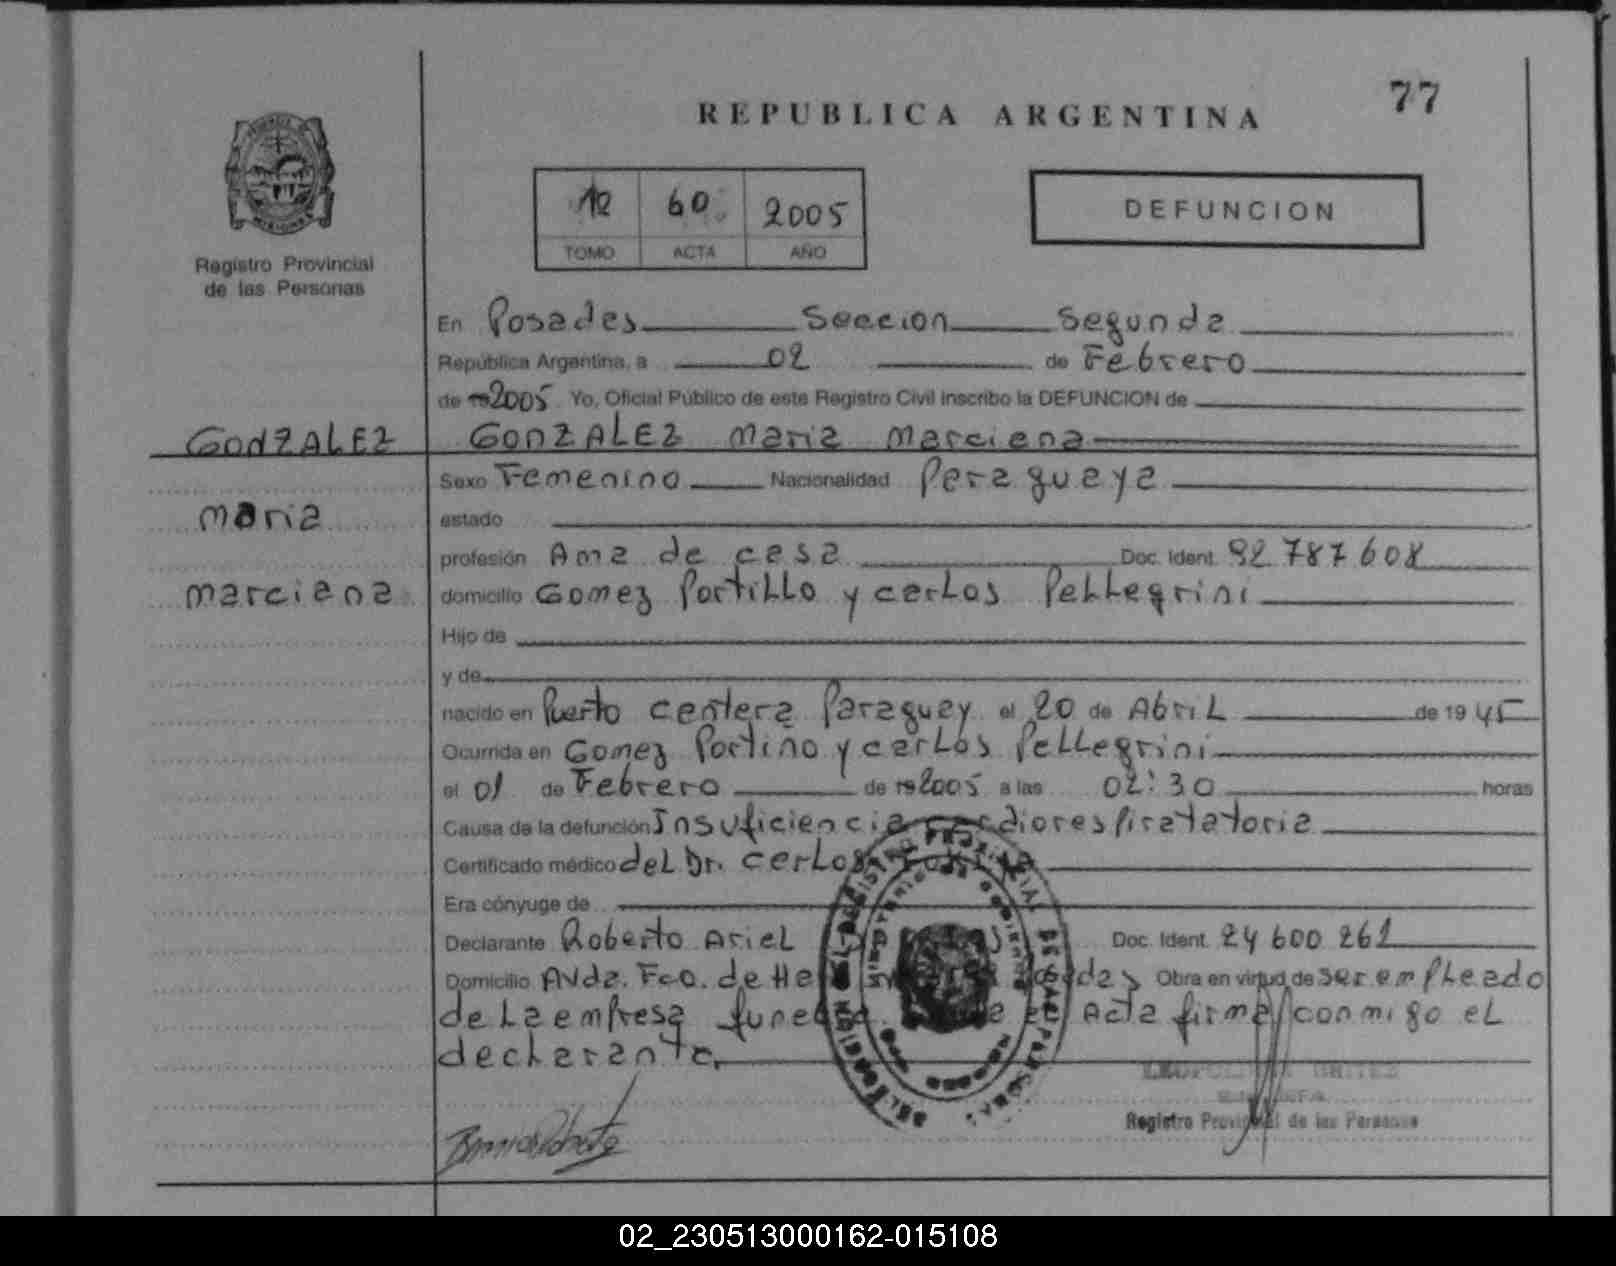 77
REPUBLICA ARGENTINA
12 60 2005
TOMO ACTA AÑO
DEFUNCION
Registro Provincial
de las Personas
En Posadas Seccion Segunda
República Argentina, a 02 de Febrero
de 19 2005 Yo, Oficial Público de este Registro Civil inscribo la DEFUNCION de
GONZALEZ GONZALEZ Maria Marciana
Sexo Femenino Nacionalidad Paraguaya
Maria estado
profesión Ama de casa Doc. Ident. 92 787 608
Marciana domicilio Gomez Portillo y carlos Pellegrini
Hijo de
y de
nacido en Puerto Paraguay el 20 de Abril de 19 45
Ocurrida en Gomez Portiño y carlos Pellegrini
el 01 de Febrero de 19 2005 a las 02:30 horas
Causa de la defunción Insuficiencia cardiorespiratatoria
Certificado médico del Dr. Carlos
Era cónyuge de
Declarante Roberto Ariel Doc. Ident. 24 600 261
Domicilio Avda. Fco. de Posadas Obra en virtud de ser empleado
de La empresa Acta firma conmigo el
declarante.
Registro Provincial de las Personas
02_230513000162-015108